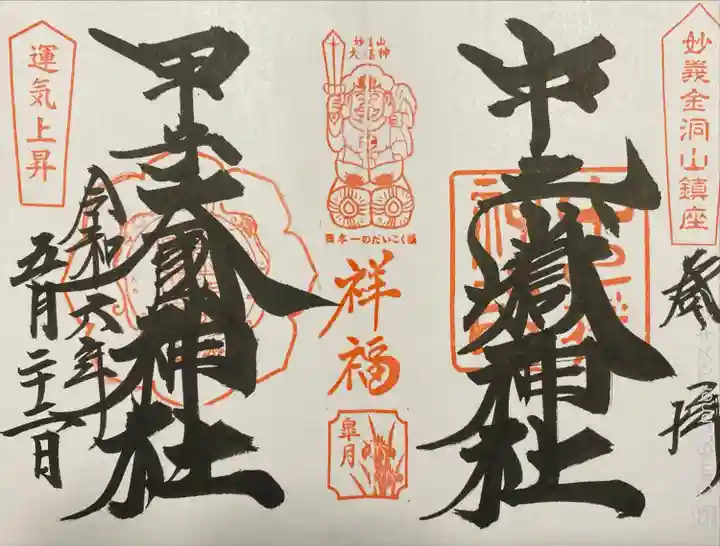 妙義金洞山鎮座
奉拝
中之嶽神社
日本一のだいこく様
祥福
皐月
甲子大國神社
運気上昇
令和六年
五月二十六日